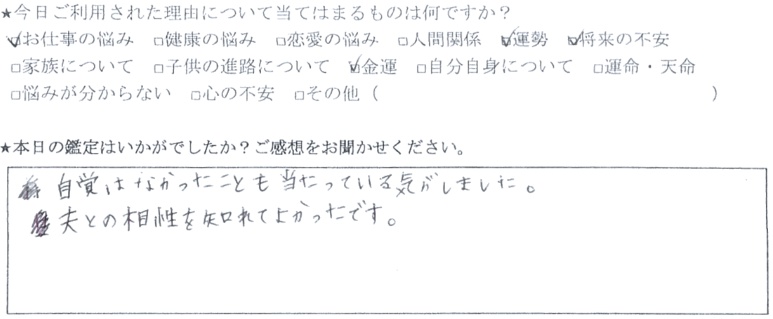 ★今日ご利用された理由について当てはまるものは何ですか？
☑お仕事の悩み □健康の悩み □恋愛の悩み □人間関係 ☑運勢 ☑将来の不安
□家族について □子供の進路について ☑金運 □自分自身について □運命・天命
□悩みが分からない □心の不安 □その他（ ）
★本日の鑑定はいかがでしたか？ご感想をお聞かせください。
自覚はなかったことも当たっている気がしました。
夫との相性を知れてよかったです。